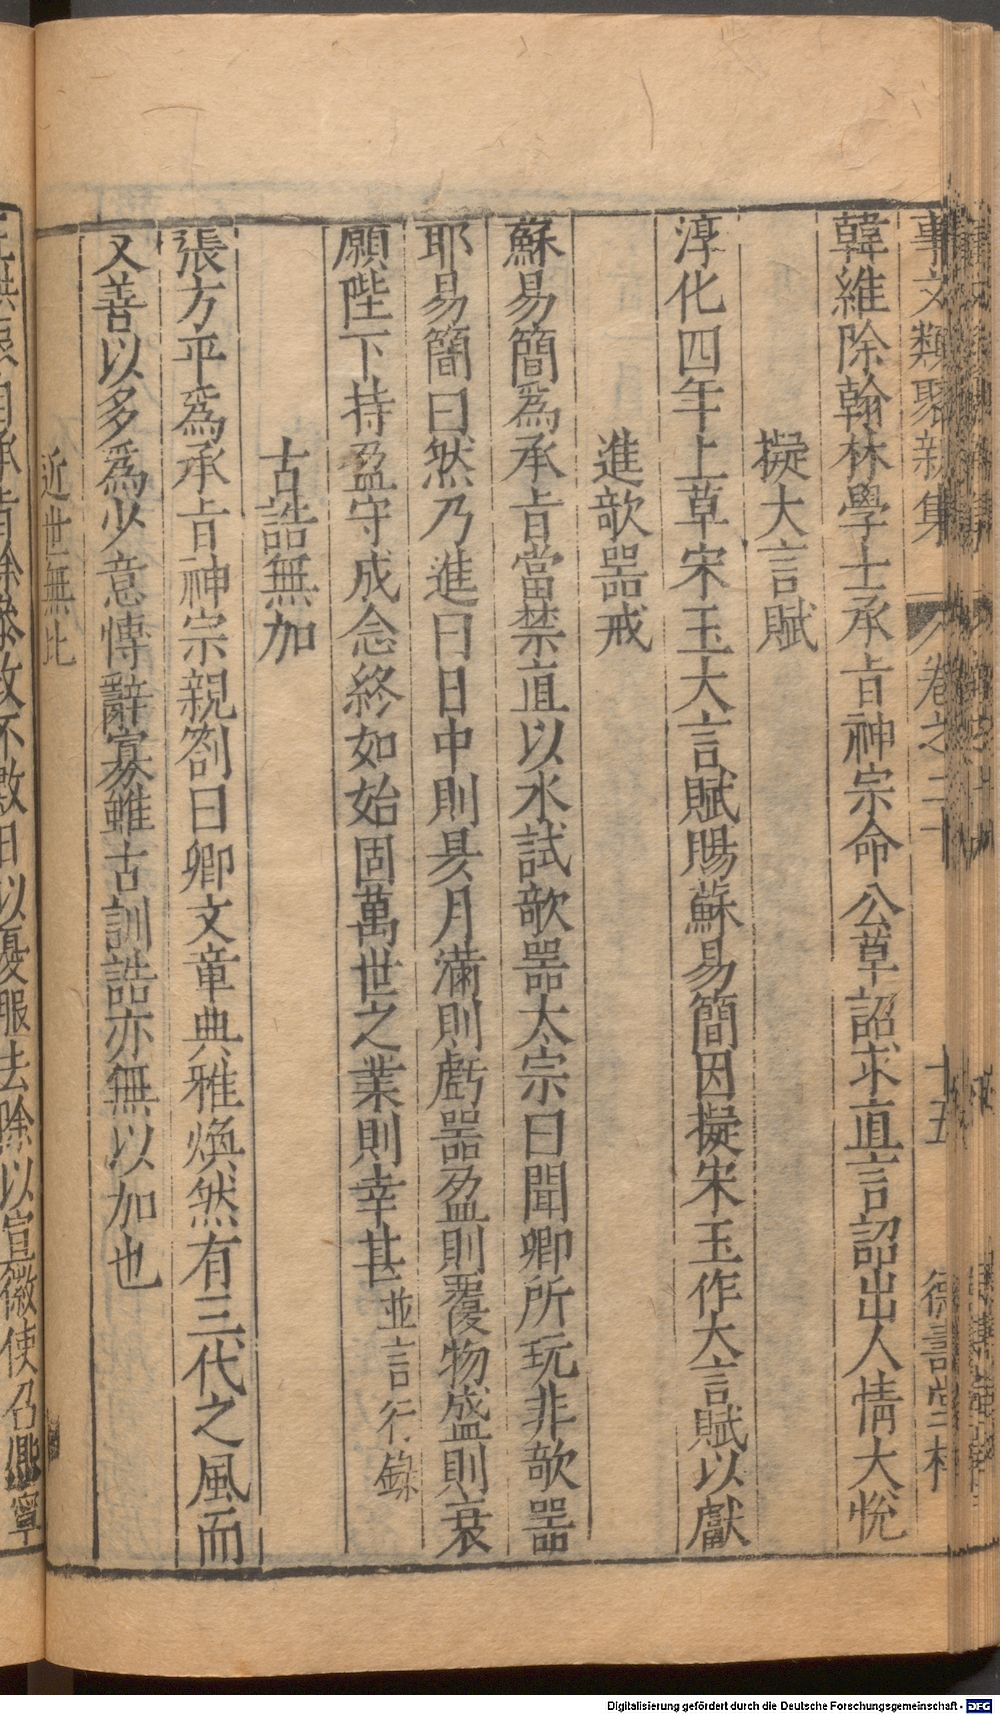 事文類聚新集 卷之二十 十五 德壽堂梓
韓維除翰林學士承旨神宗命公草詔求直言詔出人情大悅
擬大言賦
淳化四年上草宋玉大言賦賜蘇易簡因擬宋玉作大言賦以獻
進欹器戒
蘇易簡為承旨當禁直以水試欹器太宗曰聞卿所玩非欹器
耶易簡曰然乃進曰日中則昃月滿則虧器盈則覆物盛則衰
願陛下持盈守成念終如始固萬世之業則幸甚並言行錄
古誥無加
張方平為承旨神宗親劄曰卿文章典雅煥然有三代之風而
又善以多為少意愽辭寡雖古訓誥亦無以加也
近世無比
以宣徽使召
Digitalisierung gefördert durch die Deutsche Forschungsgemeinschaft - DFG